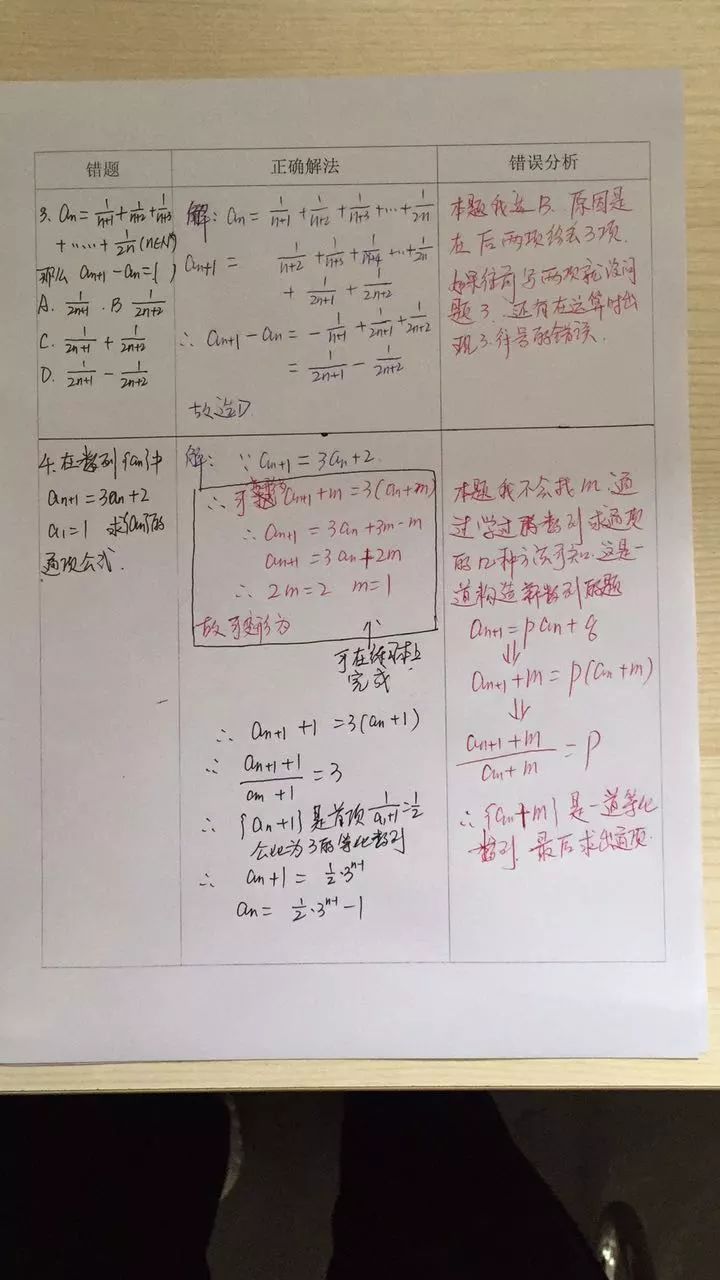 错题
正确解法
错误分析
3. an = 1/(n+1) + 1/(n+2) + 1/(n+3)
+ …… + 1/2n (n∈N*)
那么 an+1 - an = ( )
A. 1/(2n+1) . B 1/(2n+2)
C. 1/(2n+1) + 1/(2n+2)
D. 1/(2n+1) - 1/(2n+2)
解: an = 1/(n+1) + 1/(n+2) + 1/(n+3) + … + 1/2n
an+1 = 1/(n+2) + 1/(n+3) + 1/(n+4) … + 1/2n
+ 1/(2n+1) + 1/(2n+2)
∴ an+1 - an = - 1/(n+1) + 1/(2n+1) + 1/(2n+2)
= 1/(2n+1) - 1/(2n+2)
故选D
本题我选 B. 原因是
在后两项给丢了项.
如果往前写两项就没问
题了. 还有在运算时出
现了符号的错误.
4. 在数列{an}中
an+1 = 3an + 2
a1 = 1 求{an}的
通项公式.
解: ∵ an+1 = 3an + 2
∴ 可 an+1 + m = 3(an + m)
∴ an+1 = 3an + 3m - m
an+1 = 3an + 2m
∴ 2m = 2 m = 1
故可变形为
可在练习本上
完成
∴ an+1 + 1 = 3(an + 1)
∴ (an+1 + 1)/(an + 1) = 3
∴ {an+1} 是首项 1/(a1+1) = 1/2
公比为3的等比数列
∴ an + 1 = 1/2 · 3^(n-1)
an = 1/2 · 3^(n-1) - 1
本题我不会找 m. 通
过学过的数列求通项
的几种方法可知. 这是一
道构造新数列的题
an+1 = p an + q
⇓
an+1 + m = p(an + m)
⇓
(an+1 + m)/(an + m) = p
∴ {an + m} 是一道等比
数列. 最后求出通项.